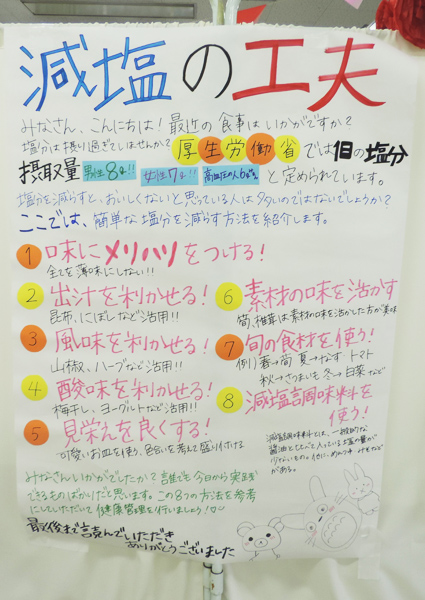 減塩の工夫
みなさん、こんにちは！最近の食事はいかがですか？
塩分は摂り過ぎていませんか？厚生労働省では1日の塩分
摂取量 男性8g 女性7g 高血圧の人6g と定められています。
塩分を減らすと、おいしくないと思っている人は多いのではないでしょうか？
ここでは、簡単な塩分を減らす方法を紹介します。
1 味にメリハリをつける！
全てを薄味にしない!!
2 出汁を利かせる！
昆布、にぼしなど活用!!
3 風味を利かせる！
山椒、ハーブなど活用!!
4 酸味を利かせる！
梅干し、ヨーグルトなど活用!!
5 見栄えを良くする！
可愛いお皿を使う、色合いを考えて盛り付ける
6 素材の味を活かす
筍、椎茸は素材の味を活かした方が美味
7 旬の食材を使う！
例）春→筍 夏→なす・トマト
秋→さつまいも 冬→白菜など
8 減塩調味料を
使う！
減塩調味料とは、一般的な
醤油とくらべて入っている塩の量が
少ないもの。他に、めんつゆ みそなど
がある。
みなさんいかがでしたか？誰でも今日から実践
できるものばかりだと思います。この8つの方法を参考
にしていただいて健康管理を行いましょう!♡
最後まで読んでいただき
ありがとうございました